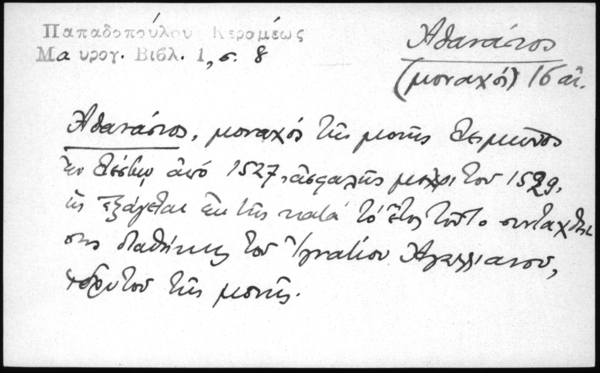 Παπαδοπούλου Κεραμέως
Μαυρογ. Βιβλ. 1, σ. 8
Ἀθανάσιος
(μοναχός) 16 αἰ.
Ἀθανάσιος, μοναχός τῆς μονῆς Λειμῶνος
ἐν Λέσβῳ ἀπό 1527, ἀσφαλῶς μέχρι τοῦ 1529,
ὡς ἐξάγεται ἐκ τῆς κατά τό ἔτος τοῦτο συνταχθεί
σης διαθήκης τοῦ Ἰγνατίου Ἀγαλλιανοῦ,
ἱδρυτοῦ τῆς μονῆς.